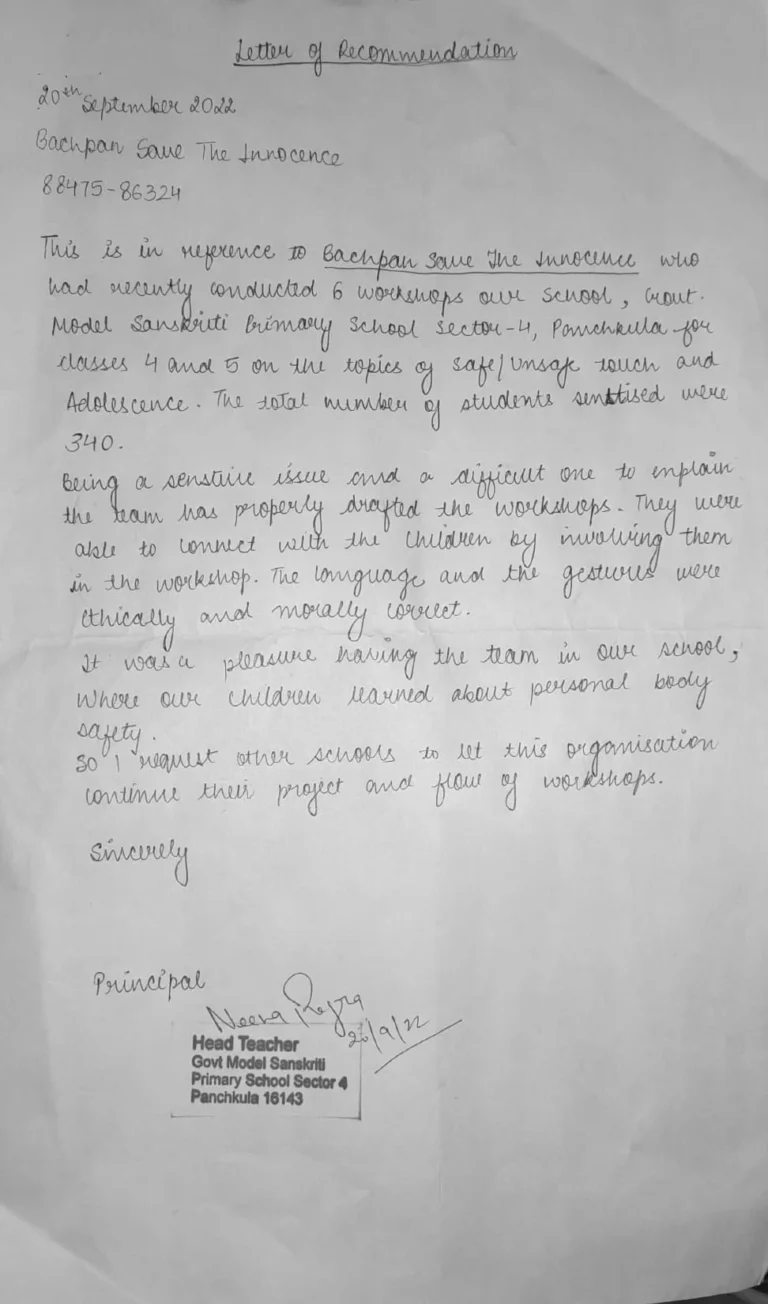 Letter of Recommendation
20th September 2022
Bachpan Save The Innocence
88475-86324
This is in reference to Bachpan Save The Innocence who
had recently conducted 6 workshops our School, Govt.
Model Sanskriti Primary School Sector-4, Panchkula for
classes 4 and 5 on the topics of Safe/Unsafe touch and
Adolescence. The total number of students senstised were
340.
Being a senstive issue and a difficult one to explain
the team has properly drafted the workshops. They were
able to connect with the children by involving them
in the workshop. The language and the gestures were
ethically and morally correct.
It was a pleasure having the team in our school,
where our children learned about personal body
safety.
So I request other schools to let this organisation
continue their project and flow of workshops.
Sincerely
Principal
Neera
20/9/22
Head Teacher
Govt Model Sanskriti
Primary School Sector 4
Panchkula 16143